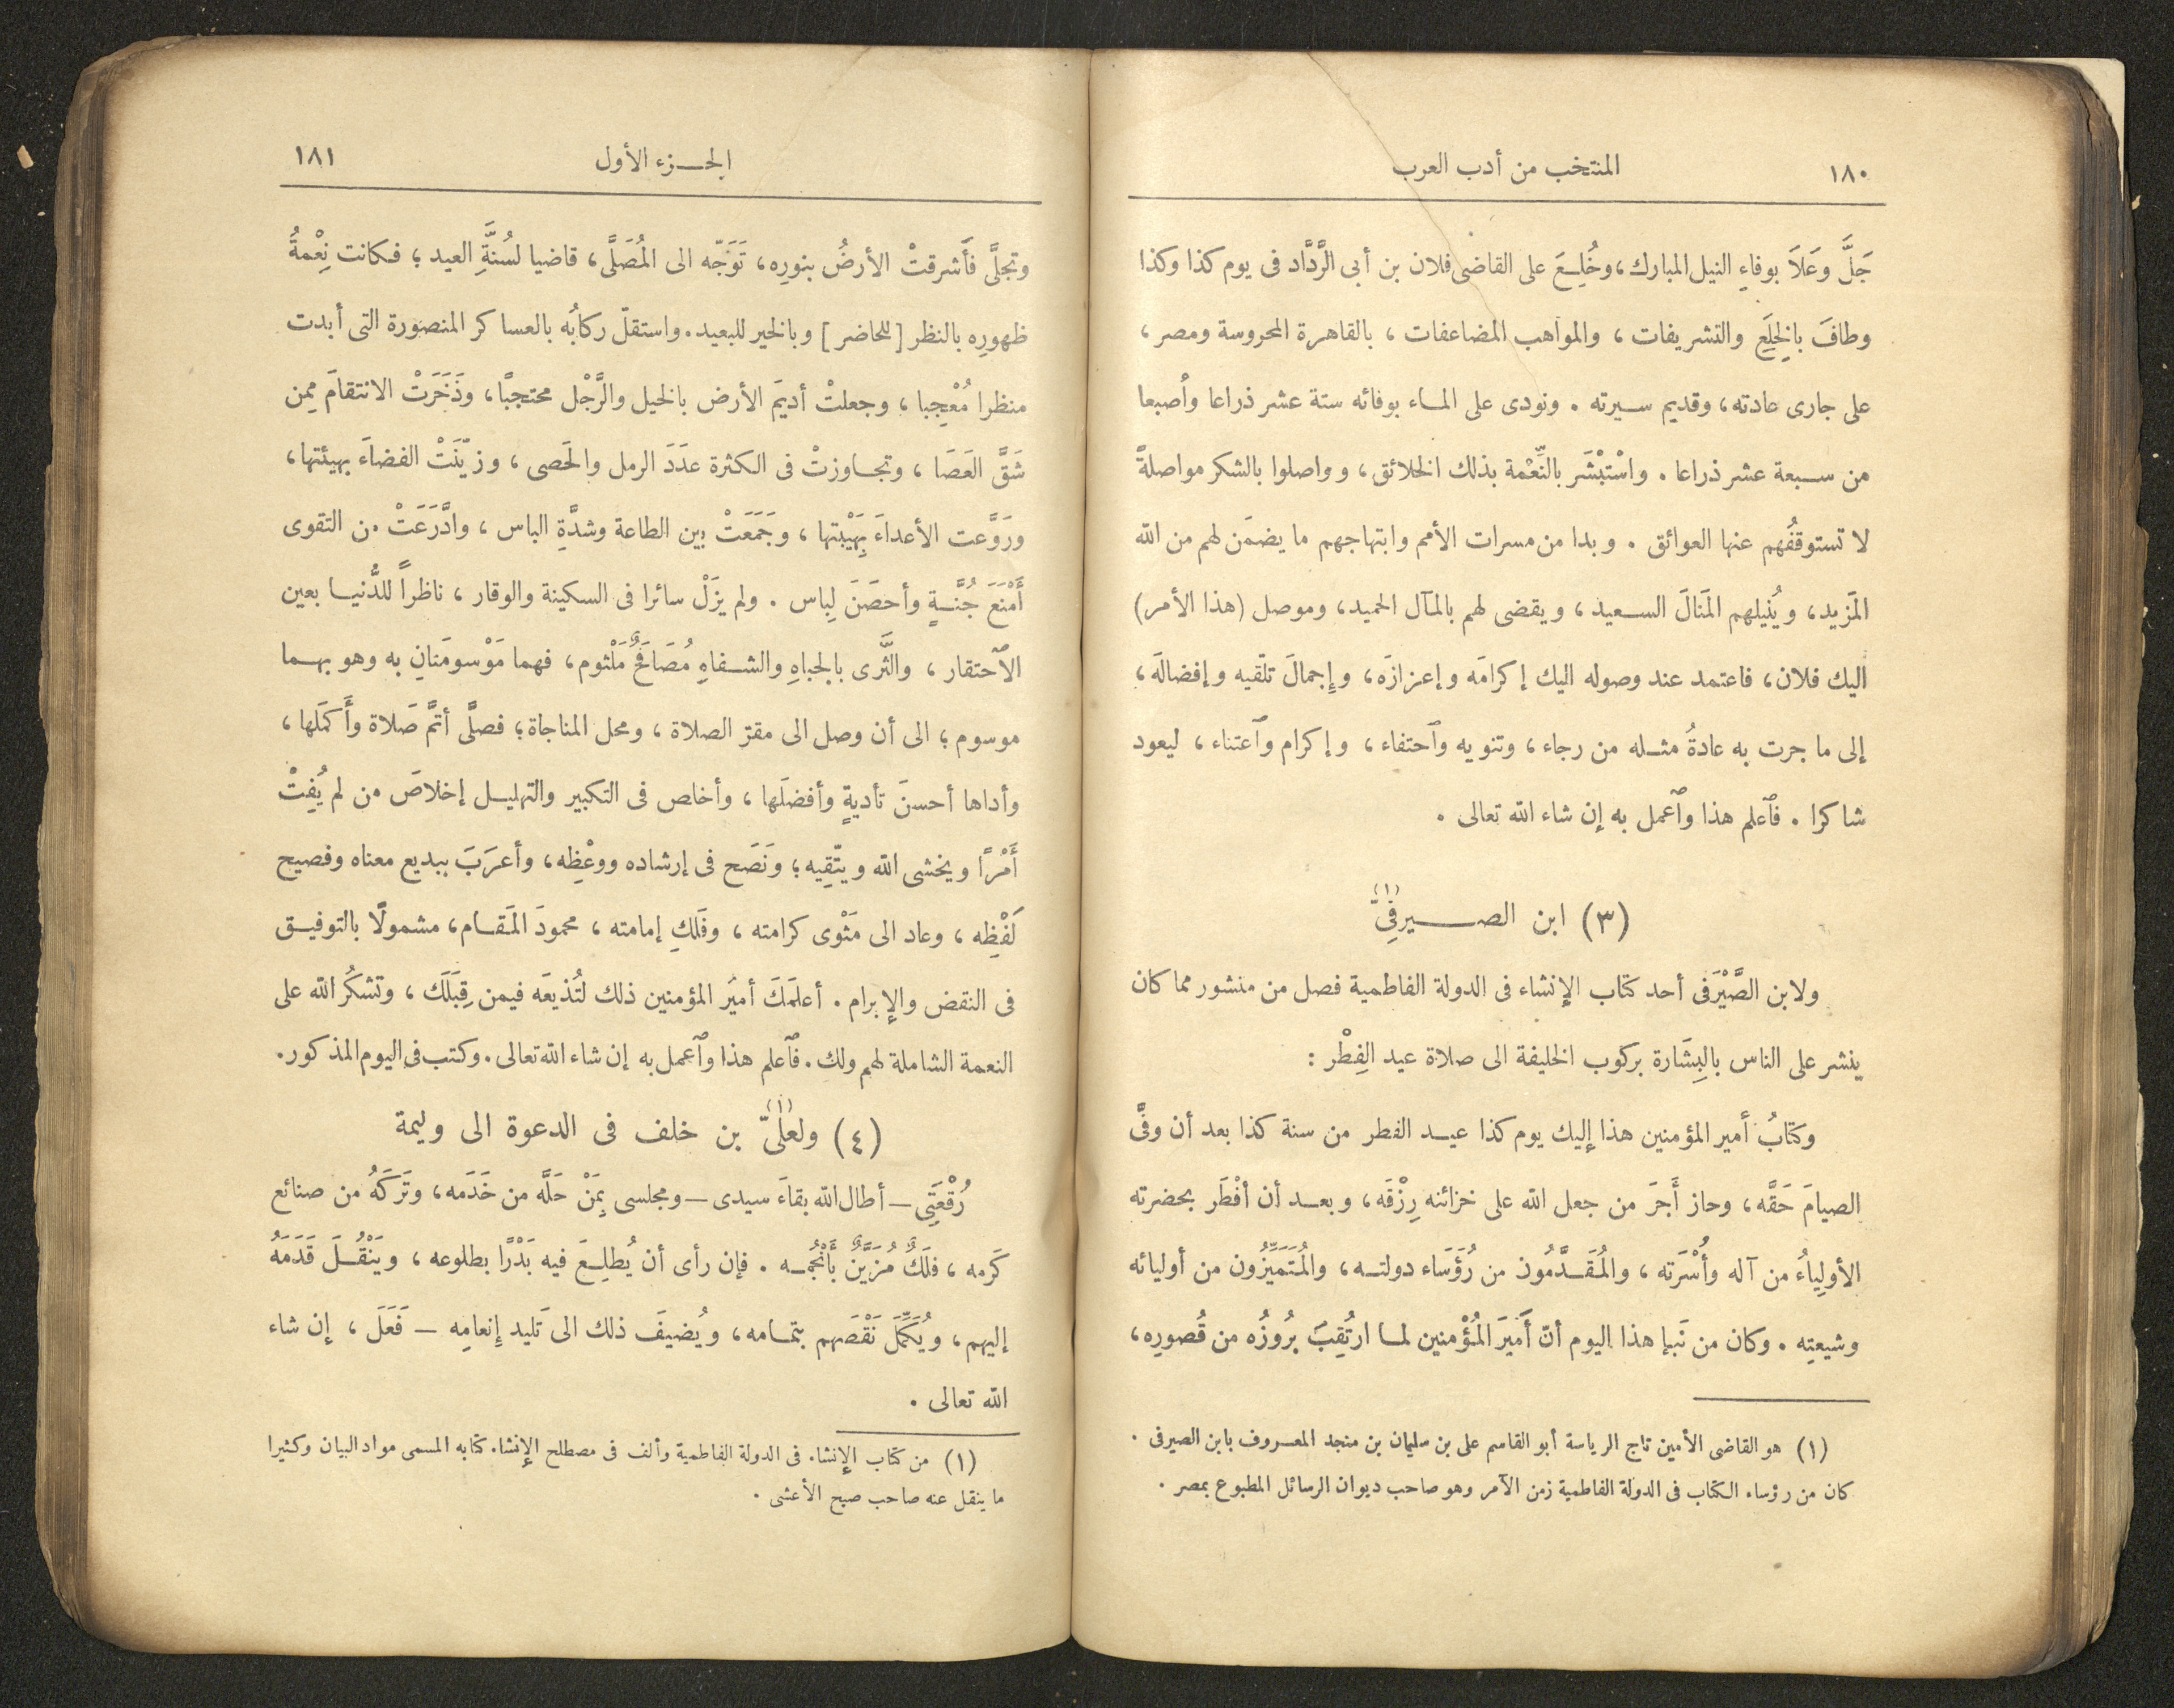 ١٨٠ المنتخب من أدب العرب
جَلَّ وَعَلَا بوفاءِ النيل المبارك، وخُلِعَ على القاضى فلان بن أبى الرَّدَّاد فى يوم كذا وكذا
وطافَ بالخِلَع والتشريفات، والمواهب المضاعفات، بالقاهرة المحروسة ومصر،
على جارى عادته، وقديم سيرته. ونودى على الماء بوفائه ستة عشر ذراعا وأصبعا
من سبعة عشر ذراعا. واسْتَبْشَر بالنِّعْمة بذلك الخلائق، وواصلوا بالشكر مواصلةً
لا تستوقفُهم عنها العوائق. وبدا من مسرات الأمم وابتهاجهم ما يضمَن لهم من الله
المَزيد، ويُنيلهم المَنالَ السعيد، ويقضى لهم بالمآل الحميد، وموصل (هذا الأمر)
اليك فلان، فاعتمد عند وصوله اليك إكرامَه وإعزازَه، وإجمالَ تلقّيه وإفضالَه،
إلى ما جرت به عادةُ مثله من رجاء، وتنويه وٱحتفاء، وإكرام وٱعتناء، ليعود
شاكرا. فٱعلم هذا وٱعمل به إن شاء الله تعالى.
(٣) ابن الصيرفِىّ (١)
ولابن الصَّيْرَفى أحد كتاب الإنشاء فى الدولة الفاطمية فصل من منشور مما كان
ينشر على الناس بالبِشَارة بركوب الخليفة الى صلاة عيد الفِطْر :
وكتابُ أمير المؤمنين هذا إليك يوم كذا عيد الفطر من سنة كذا بعد أن وفَّى
الصيامَ حَقَّه، وحاز أَجرَ من جعل الله على خزائنه رِزْقَه، وبعد أن أفْطَر بحضرته
الأولِياءُ من آله وأُسْرَته، والمُقَدَّمُون من رُؤَسَاء دولته، والمُتَمَيِّزُون من أوليائه
وشيعتِه. وكان من نَبإ هذا اليوم أنّ أَميرَ المُؤْمنين لما ارتُقِبَ بُرُوزُه من قُصورِه،
(١) هو القاضى الأمين تاج الرياسة أبو القاسم على بن سليمان بن منجد المعروف بابن الصيرفى.
كان من رؤساء الكتاب فى الدولة الفاطمية زمن الآمر وهو صاحب ديوان الرسائل المطبوع بمصر.
الجزء الأول ١٨١
وتجلَّى فأَشرقتْ الأرضُ بنورِه، تَوَجّه الى المُصَلَّى، قاضيا لسُنَّةِ العيد؛ فكانت نِعْمةُ
ظهورِه بالنظر [للحاضر] وبالخير للبعيد. واستقلّ ركابُه بالعساكر المنصورة التى أبدت
منظرا مُعْجِبا، وجعلتْ أديمَ الأرض بالخيل والرَّجْل محتجبًا، وذَخَرَتْ الانتقامَ ممِن
شَقَّ العَصَا، وتجاوزتْ فى الكثرة عدَدَ الرمل والحَصى، وزيّنَتْ الفضاَء بهيئتها،
ورَوَّعت الأعداءَ بِهَيْبتها، وجَمَعَتْ بين الطاعة وشدَّةِ الباس، وادَّرَعَتْ من التقوى
أَمْنَعَ جُنَّةٍ وأحصَنَ لِباس. ولم يزَلْ سائرا فى السكينة والوقار، ناظراً للدُّنيا بعين
الٱحتقار، والثَّرى بالجباهِ والشفاهِ مُصَافَحٌ مَلْثوم، فهما مَوْسومَنانِ به وهو بهما
موسوم؛ الى أن وصل الى مقرّ الصلاة، ومحل المناجاة؛ فصلَّى أتمَّ صَلاة وأَكمَلها،
وأداها أحسنَ تأديةٍ وأفضلَها، وأخلص فى التكبير والتهليل إخلاصَ من لم يُفِتْ
أَمْرًا ويخشى الله ويتّقِيه؛ ونَصَح فى إرشاده ووعْظِه، وأعرَبَ ببديع معناه وفصيح
لَفْظِه، وعاد الى مَثْوى كرامته، وفَلَكِ إمامته، محمودَ المَقام، مشمولًا بالتوفيق
فى النقض والإبرام. أعلَمَكَ أميُر المؤمنين ذلك لتُذيعَه فيمن قِبَلَك، وتشكُر الله على
النعمة الشاملة لهم ولك. فٱعلم هذا وٱعمل به إن شاء الله تعالى. وكتب فى اليوم المذكور.
(٤) ولعلىّ (١) بن خلف فى الدعوة الى وليمة
رُقْعَتِى – أطال الله بقاءَ سيدى – ومجلسى بِمَنْ حَلَّه من خَدَمه، وتَرَكَهُ من صنائع
كَرمه، فلَكٌ مُزَيَّنٌ بأَنْجُمه. فإن رأى أن يُطلِعَ فيه بَدْرًا بطلوعه، ويَنْقُلَ قَدَمَهُ
إليهم، ويُكَمِّلَ نَقْصَهم بتمامه، ويُضيفَ ذلك الى تَليد إِنعامِه – فَعَلَ، إن شاء
الله تعالى.
(١) من كتاب الإنشاء فى الدولة الفاطمية وألف فى مصطلح الإنشاء كتابه المسمى مواد البيان وكثيرا
ما ينقل عنه صاحب صبح الأعشى.